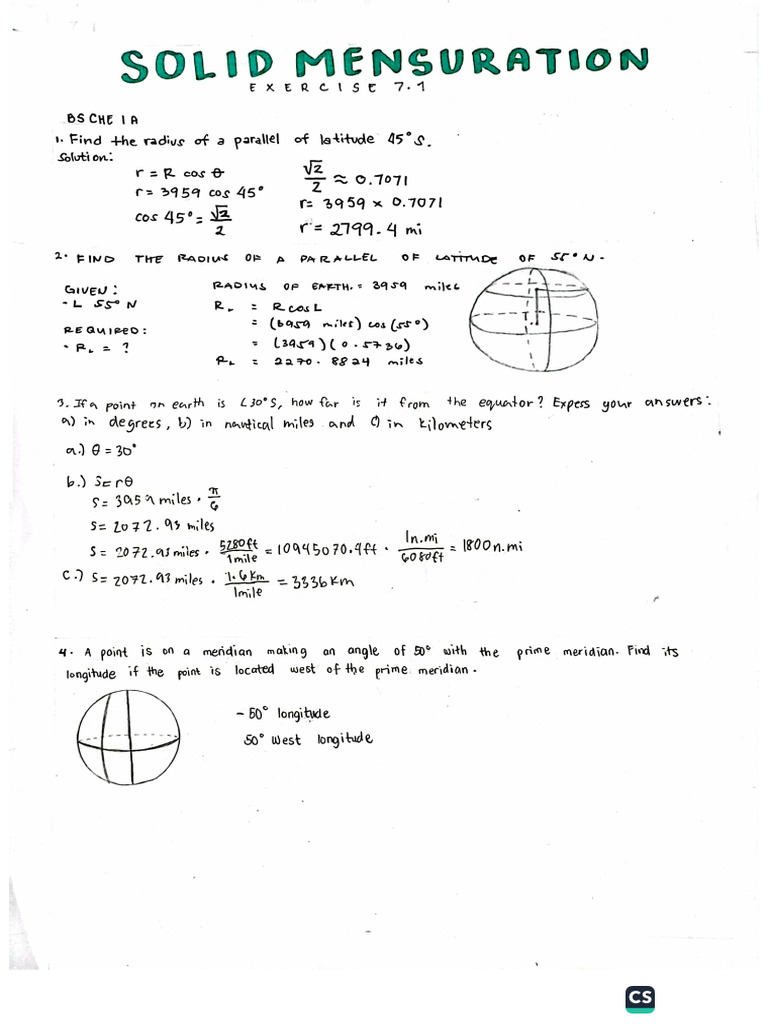 SOLID MENSURATION
EXERCISE 7.1
BS CHE 1A
1. Find the radius of a parallel of latitude 45° S.
Solution:
r = R cos θ
r = 3959 cos 45°
cos 45° = √2/2
√2/2 ≈ 0.7071
r = 3959 x 0.7071
r = 2799.4 mi
2. FIND THE RADIUS OF A PARALLEL OF LATITUDE OF 55° N.
GIVEN:
- L 55° N
REQUIRED:
- RL = ?
RADIUS OF EARTH = 3959 miles
RL = R cos L
= (3959 miles) cos (55°)
= (3959)(0.5736)
RL = 2270.8824 miles
3. If a point on earth is L30°S, how far is it from the equator? Expess your answers:
a) in degrees, b) in nautical miles and c) in kilometers
a.) θ = 30°
b.) S = rθ
S = 3959 miles · π/6
S = 2072.93 miles
S = 2072.93 miles · 5280ft/1mile = 10945070.4ft · 1n.mi/6080ft = 1800 n.mi
C.) S = 2072.93 miles · 1.6 Km/1mile = 3336 Km
4. A point is on a meridian making an angle of 50° with the prime meridian. Find its
longitude if the point is located west of the prime meridian.
- 50° longitude
50° West longitude
CS